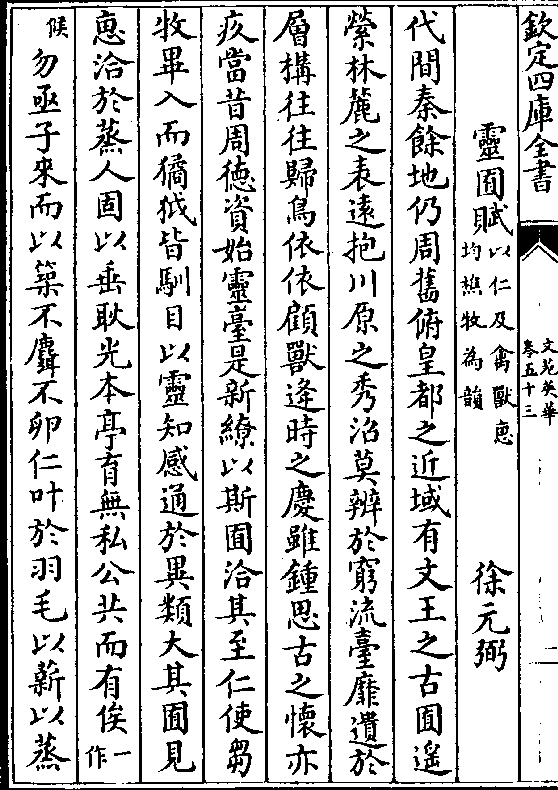 欽定四庫全書
文苑英華
卷五十三
靈囿賦以仁及禽獸恵
均樵牧為韻
徐元弼
代間秦餘地仍周舊俯皇都之近域有文王之古囿遥
縈林麓之表遠抱川原之秀沼莫辨於窮流臺靡遺於
層構往往歸鳥依依顧獸逢時之慶雖鍾思古之懷亦
疚當昔周徳資始靈臺是新繚以斯囿洽其至仁使芻
牧畢入而獝狘皆馴目以靈知感通於異類大其囿見
恵洽於蒸人固以垂耿光本亭育無私公共而有俟一作
候勿亟子來而以築不麛不卵仁叶於羽毛以薪以蒸